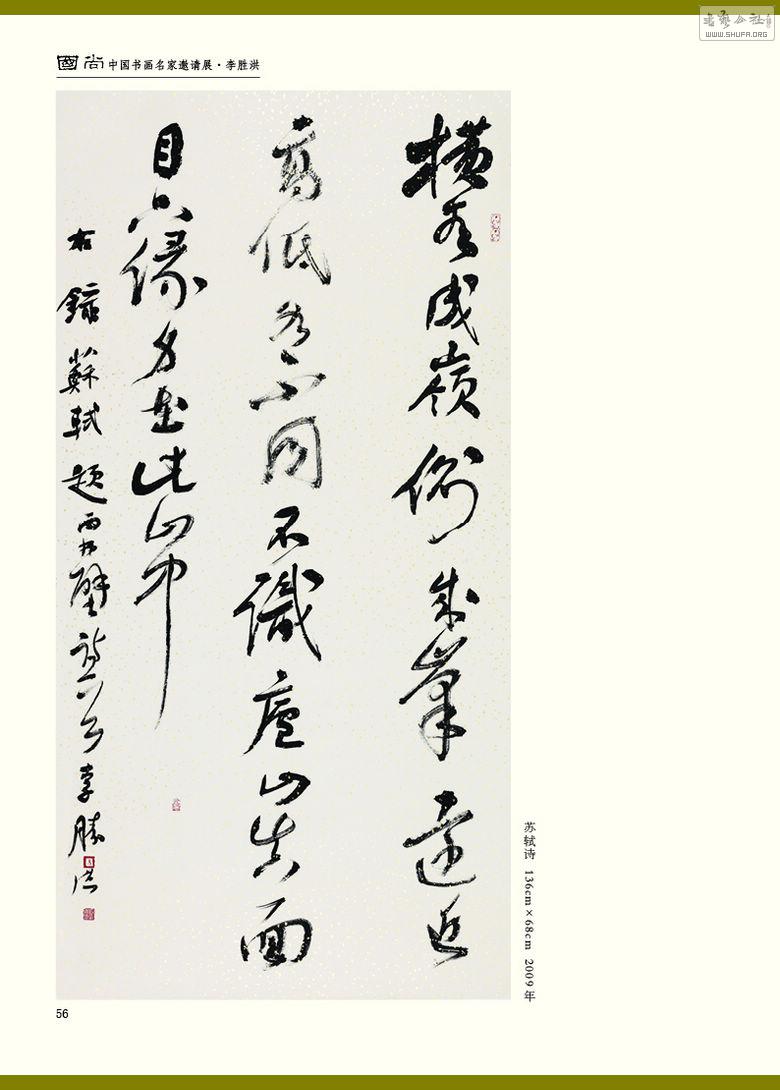 書藝公社
WWW.SHUFA.ORG
國尚 中国书画名家邀请展·李胜洪
横看成嶺側成峯遠近
高低各不同不識廬山真面
目只緣身在此山中
右錄蘇軾題西林壁詩一首李勝洪
苏轼诗 136cm×68cm 2009年
56